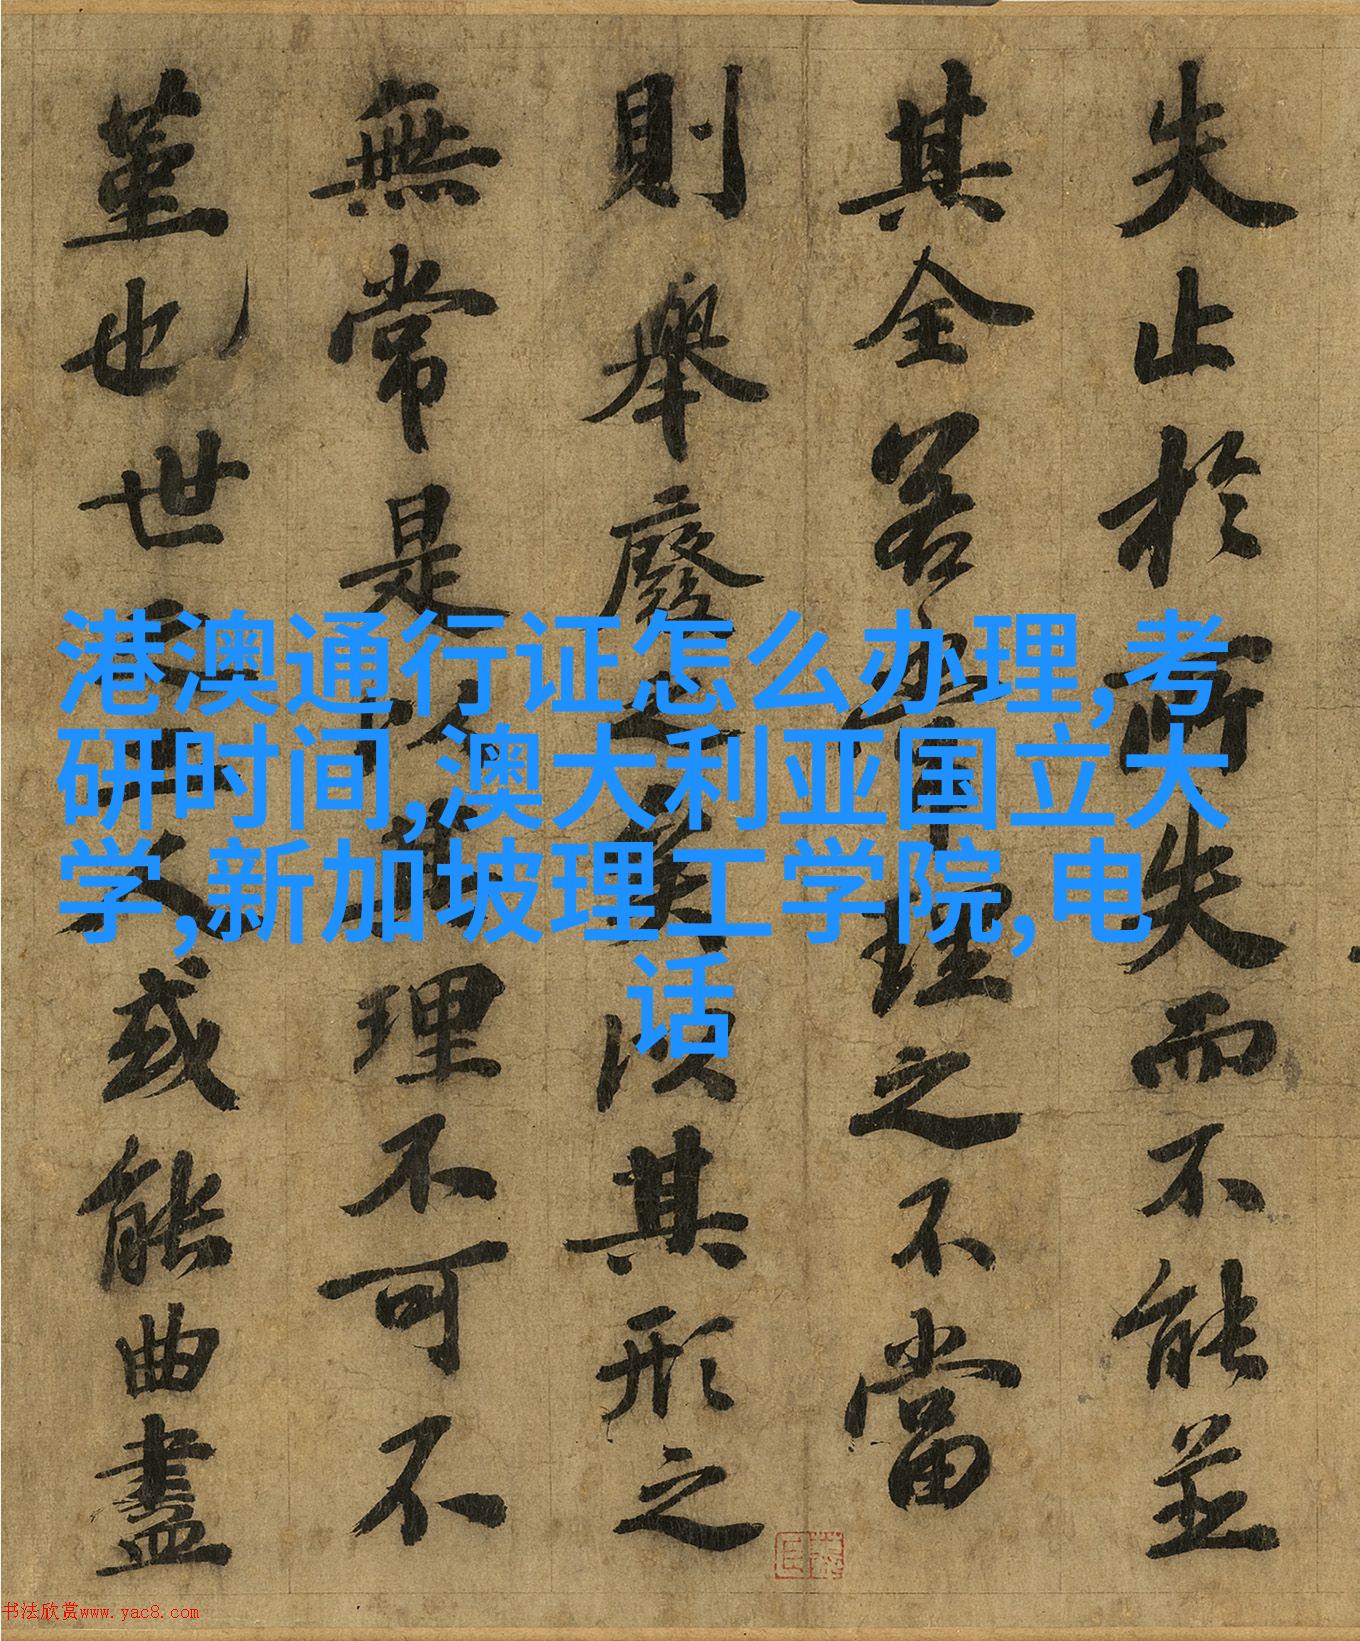 失止於所失而不能並
其全若常理之不當
則舉廢之矣以其形之
無常是以其理不可不
堇也世之工人或能曲盡
港澳通行证怎么办理,考
研时间,澳大利亚国立大
学,新加坡理工学院,电
话
书法欣赏www.yac8.com